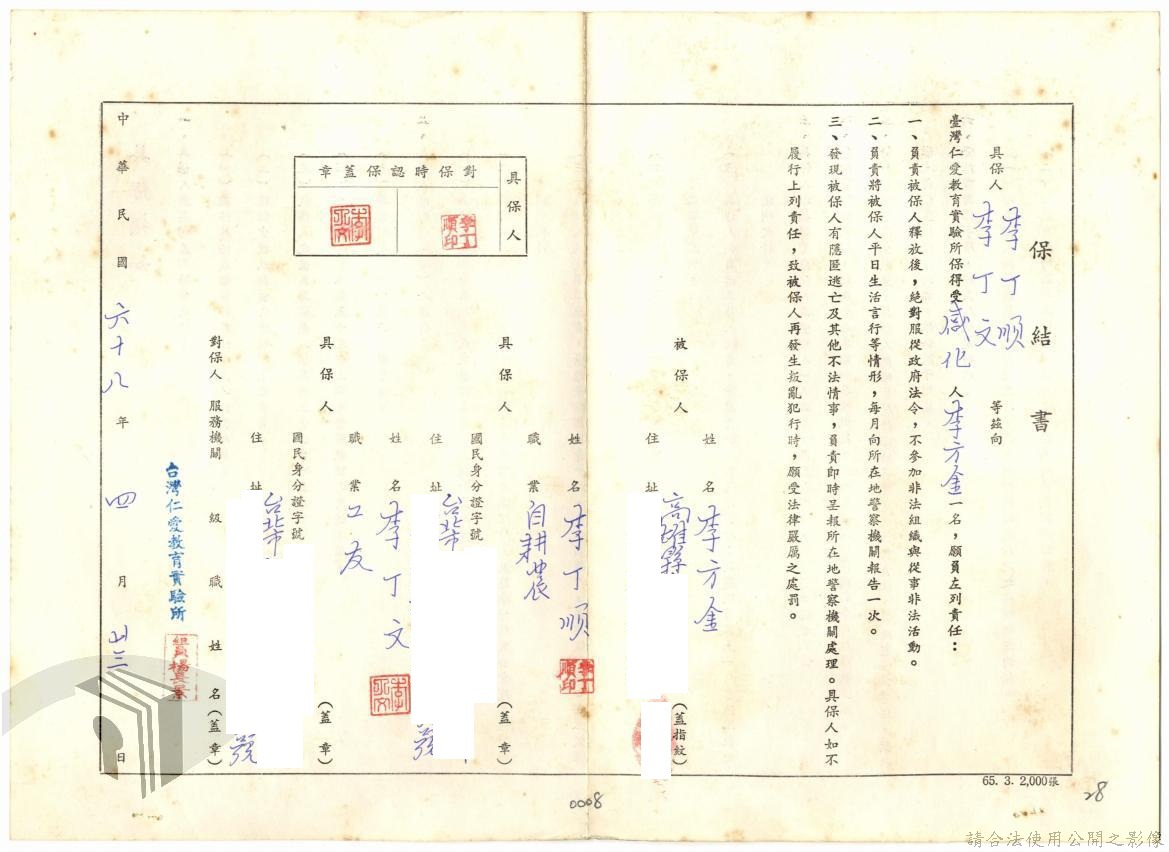 保結書
具保人 李丁順 李丁文 等茲向
臺灣仁愛教育實驗所保得受感化人李方金一名，願負左列責任：
一、負責被保人釋放後，絕對服從政府法令，不參加非法組織與從事非法活動。
二、負責將被保人平日生活言行等情形，每月向所在地警察機關報告一次。
三、發現被保人有隱匿逃亡及其他不法情事，負責即時呈報所在地警察機關處理。具保人如不
履行上列責任，致被保人再發生叛亂犯行時，願受法律嚴厲之處罰。
被保人 姓名 李方金
住址 高雄縣 (蓋指紋)
姓名 李丁順
李丁順印
具保人 職業 自耕農 (蓋章)
國民身分證字號
住址 台北市 號
姓名 李丁文
職業 工友
具保人 (蓋章)
國民身分證字號
住址 台北市 號
對保人 服務機關 級職 姓名 (蓋章)
台灣仁愛教育實驗所
具保人
對保時認保蓋章
李丁順印
中華民國六十八年四月廿三日
65. 3. 2,000張
0008
28
請合法使用公開之影像